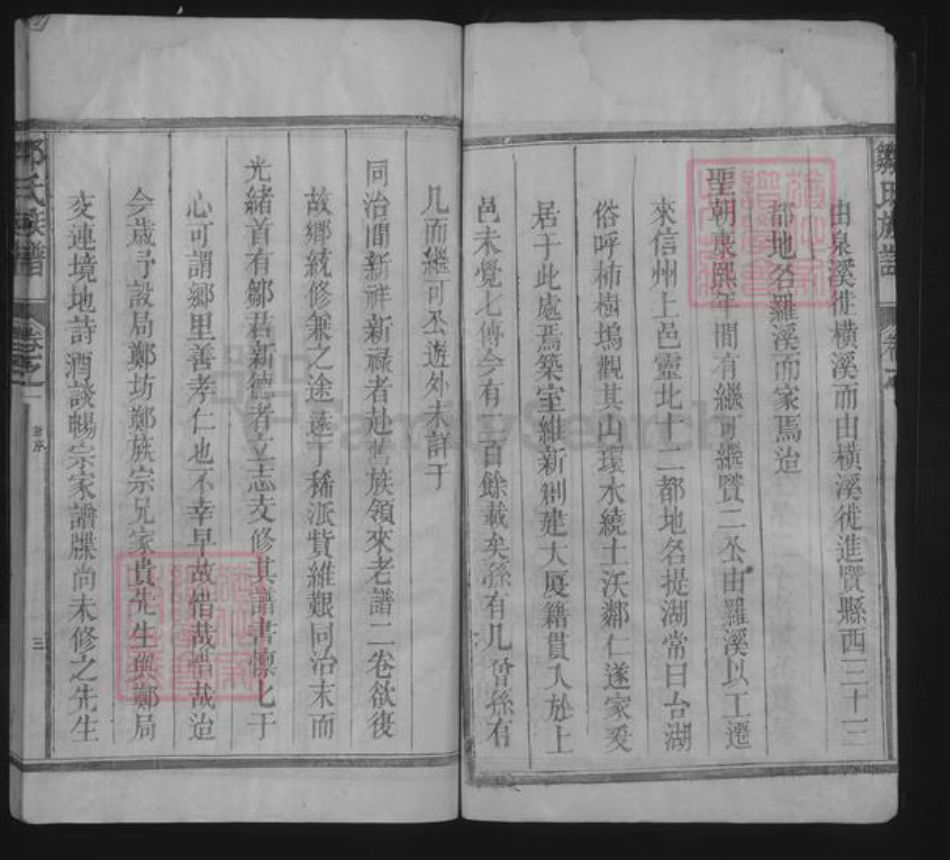 鄒氏族譜
卷之
由泉溪徙橫溪而由橫溪徙進賢縣西三十三
都地名羅溪而家焉迨
聖朝康熙年間有繼可繼賢二公由羅溪以工遷
來信州上邑靈北十二都地名提湖常曰台湖
俗呼柿樹塢觀其山環水繞土沃鄰仁遂家爰
居于此處焉築室維新創建大厦籍貫入於上
邑未覺七傳今有二百餘載矣孫有几曾孫有
几而繼可公遊外未詳于
同治間新祥新祿者赴舊族領來老譜二卷欲復
故鄉統修兼之途遠丁稀派貲維艱同治末而
光緒首有鄒君新德者立志支修其譜書懷七于
心可謂鄉里善孝仁也不幸早故惜哉惜哉迨
今歲予設局鄭坊鄭族宗兄家貴先生與鄭局
支連境地詩酒談暢宗家譜牒尚未修之先生
鄒氏族譜
卷之一
序
三
FamilySearch